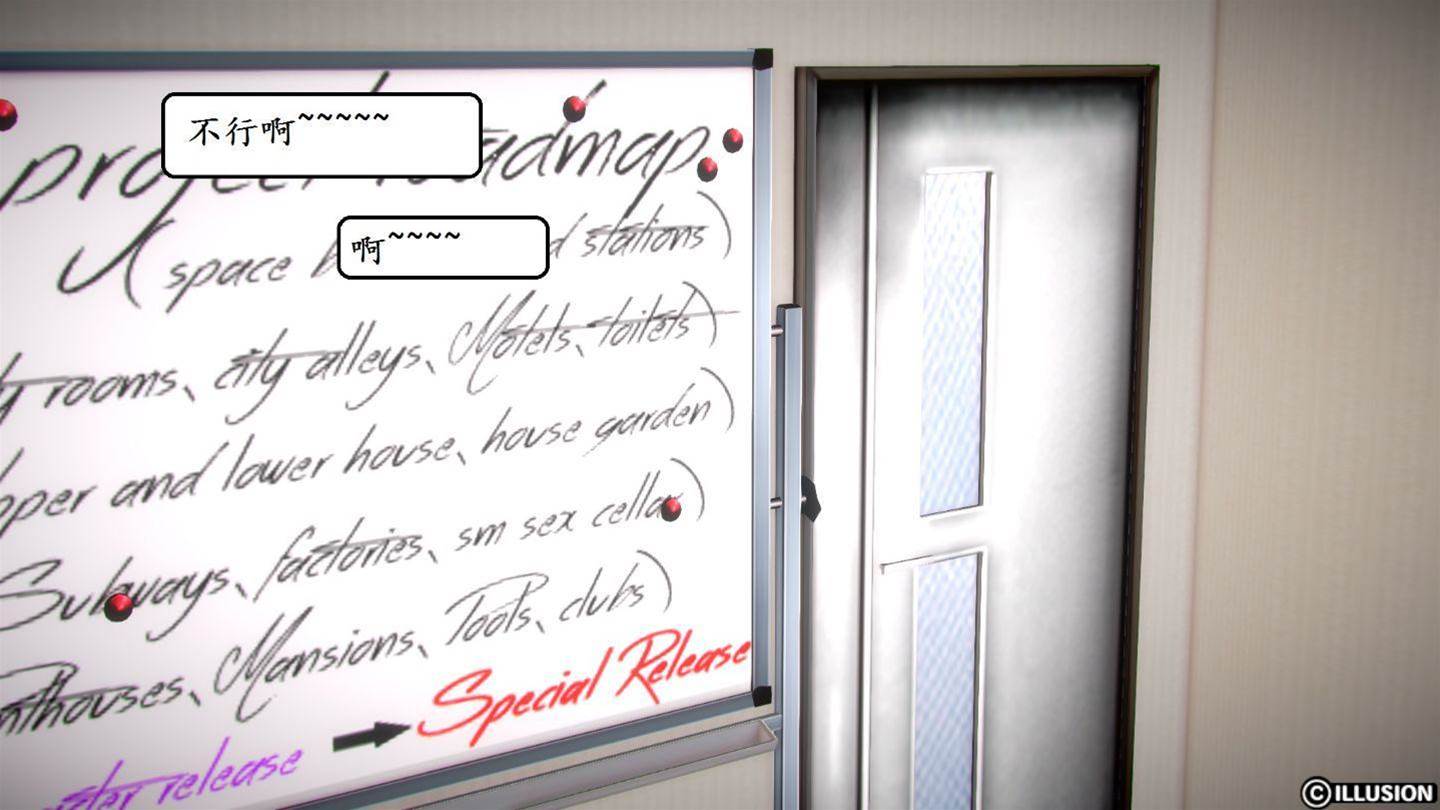 不行啊~~~~~
project roadmap
啊~~~~
(space stations)
rooms、city alleys、Motels、toilets)
and lower house、house garden)
Subways、factories、sm sex cellar)
Mansions、Pools、clubs)
Special Release
release
©ILLUSION